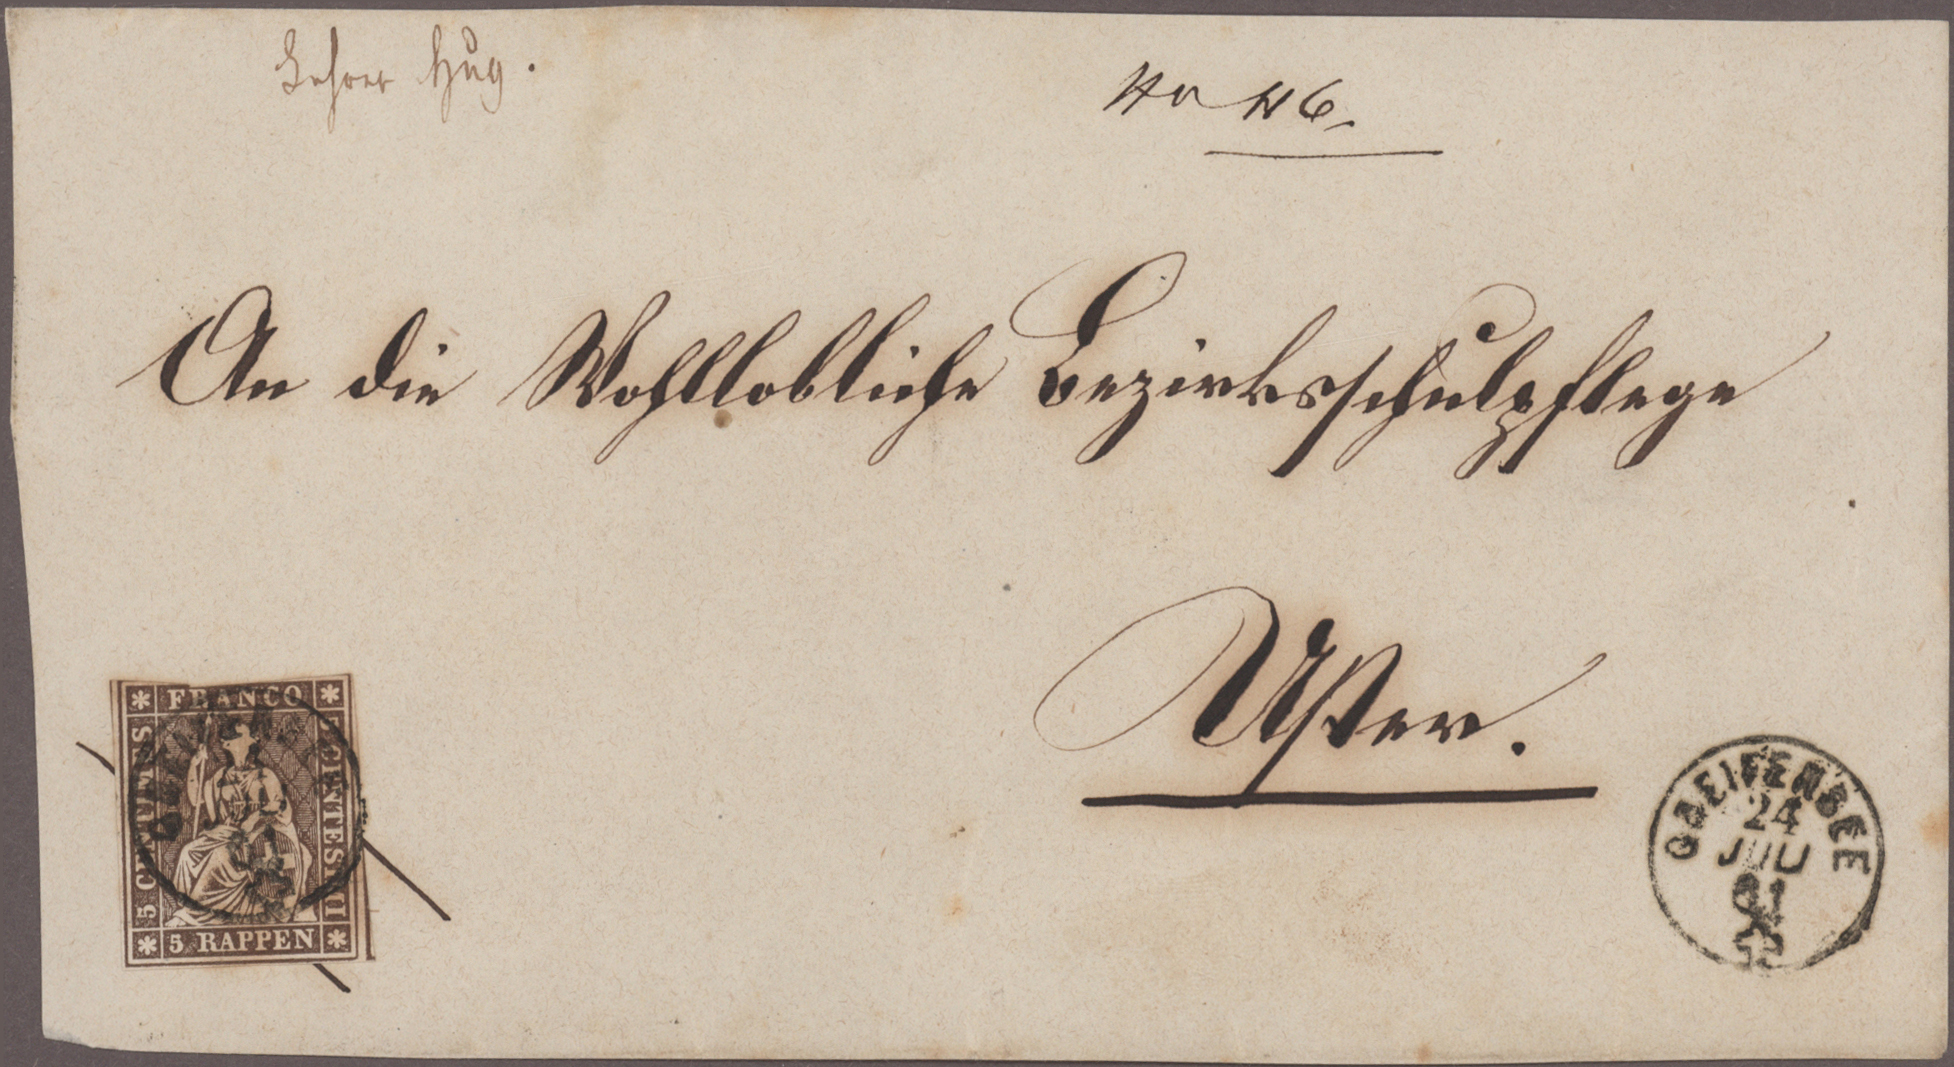 Lehrer Hug.
No 46.
An die Wohllobliche Bezirksschulpflege
Uster.
FRANCO
5 CENTIMES
5 CENTESIMI
5 RAPPEN
GREIFENSEE
24
JULI
61